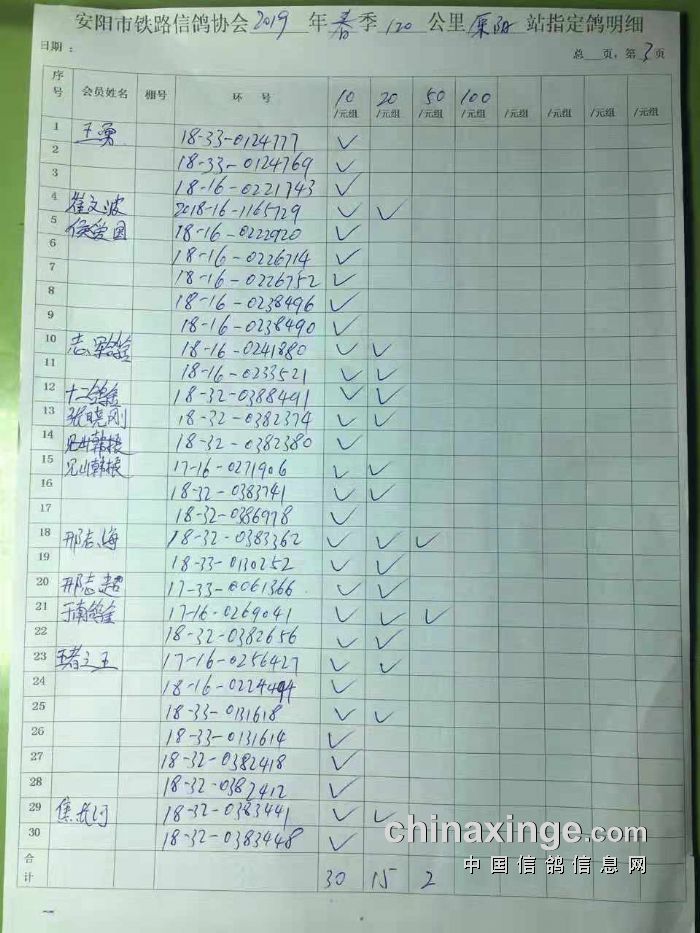 安阳市铁路信鸽协会2019年春季120公里原阳站指定鸽明细
日期： 总 页，第3页
序号 会员姓名 棚号 环 号 10/元组 20/元组 50/元组 100/元组 /元组 /元组 /元组 /元组
1 王勇 18-33-0124777 ✓
2 18-33-0124769 ✓
3 18-16-0221743 ✓
4 崔文波 2018-16-1165729 ✓ ✓
5 侯爱国 18-16-0222920 ✓
6 18-16-0226714 ✓
7 18-16-0226752 ✓
8 18-16-0238496 ✓
9 18-16-0238490 ✓
10 志军鸽舍 18-16-0241880 ✓ ✓
11 18-16-0233521 ✓ ✓
12 十二鸽舍 18-32-0388491 ✓ ✓
13 张晓刚 18-32-0382374 ✓ ✓
14 韩振 18-32-0382380 ✓
15 韩振 17-16-0271906 ✓ ✓
16 18-32-0383741 ✓ ✓
17 18-32-0386978 ✓
18 邢志海 18-32-0383362 ✓ ✓ ✓
19 18-33-0130252 ✓ ✓
20 邢志超 17-33-0061366 ✓ ✓
21 于南鸽舍 17-16-0269041 ✓ ✓ ✓
22 18-32-0382656 ✓ ✓
23 王者之王 17-16-0256427 ✓ ✓
24 18-16-0224494 ✓
25 18-33-0131618 ✓ ✓
26 18-33-0131614 ✓
27 18-32-0382418 ✓
28 18-32-0382412 ✓
29 焦 河 18-32-0383441 ✓ ✓
30 18-32-0383448 ✓
合计 30 15 2
chinaxinge.com
中国信鸽信息网